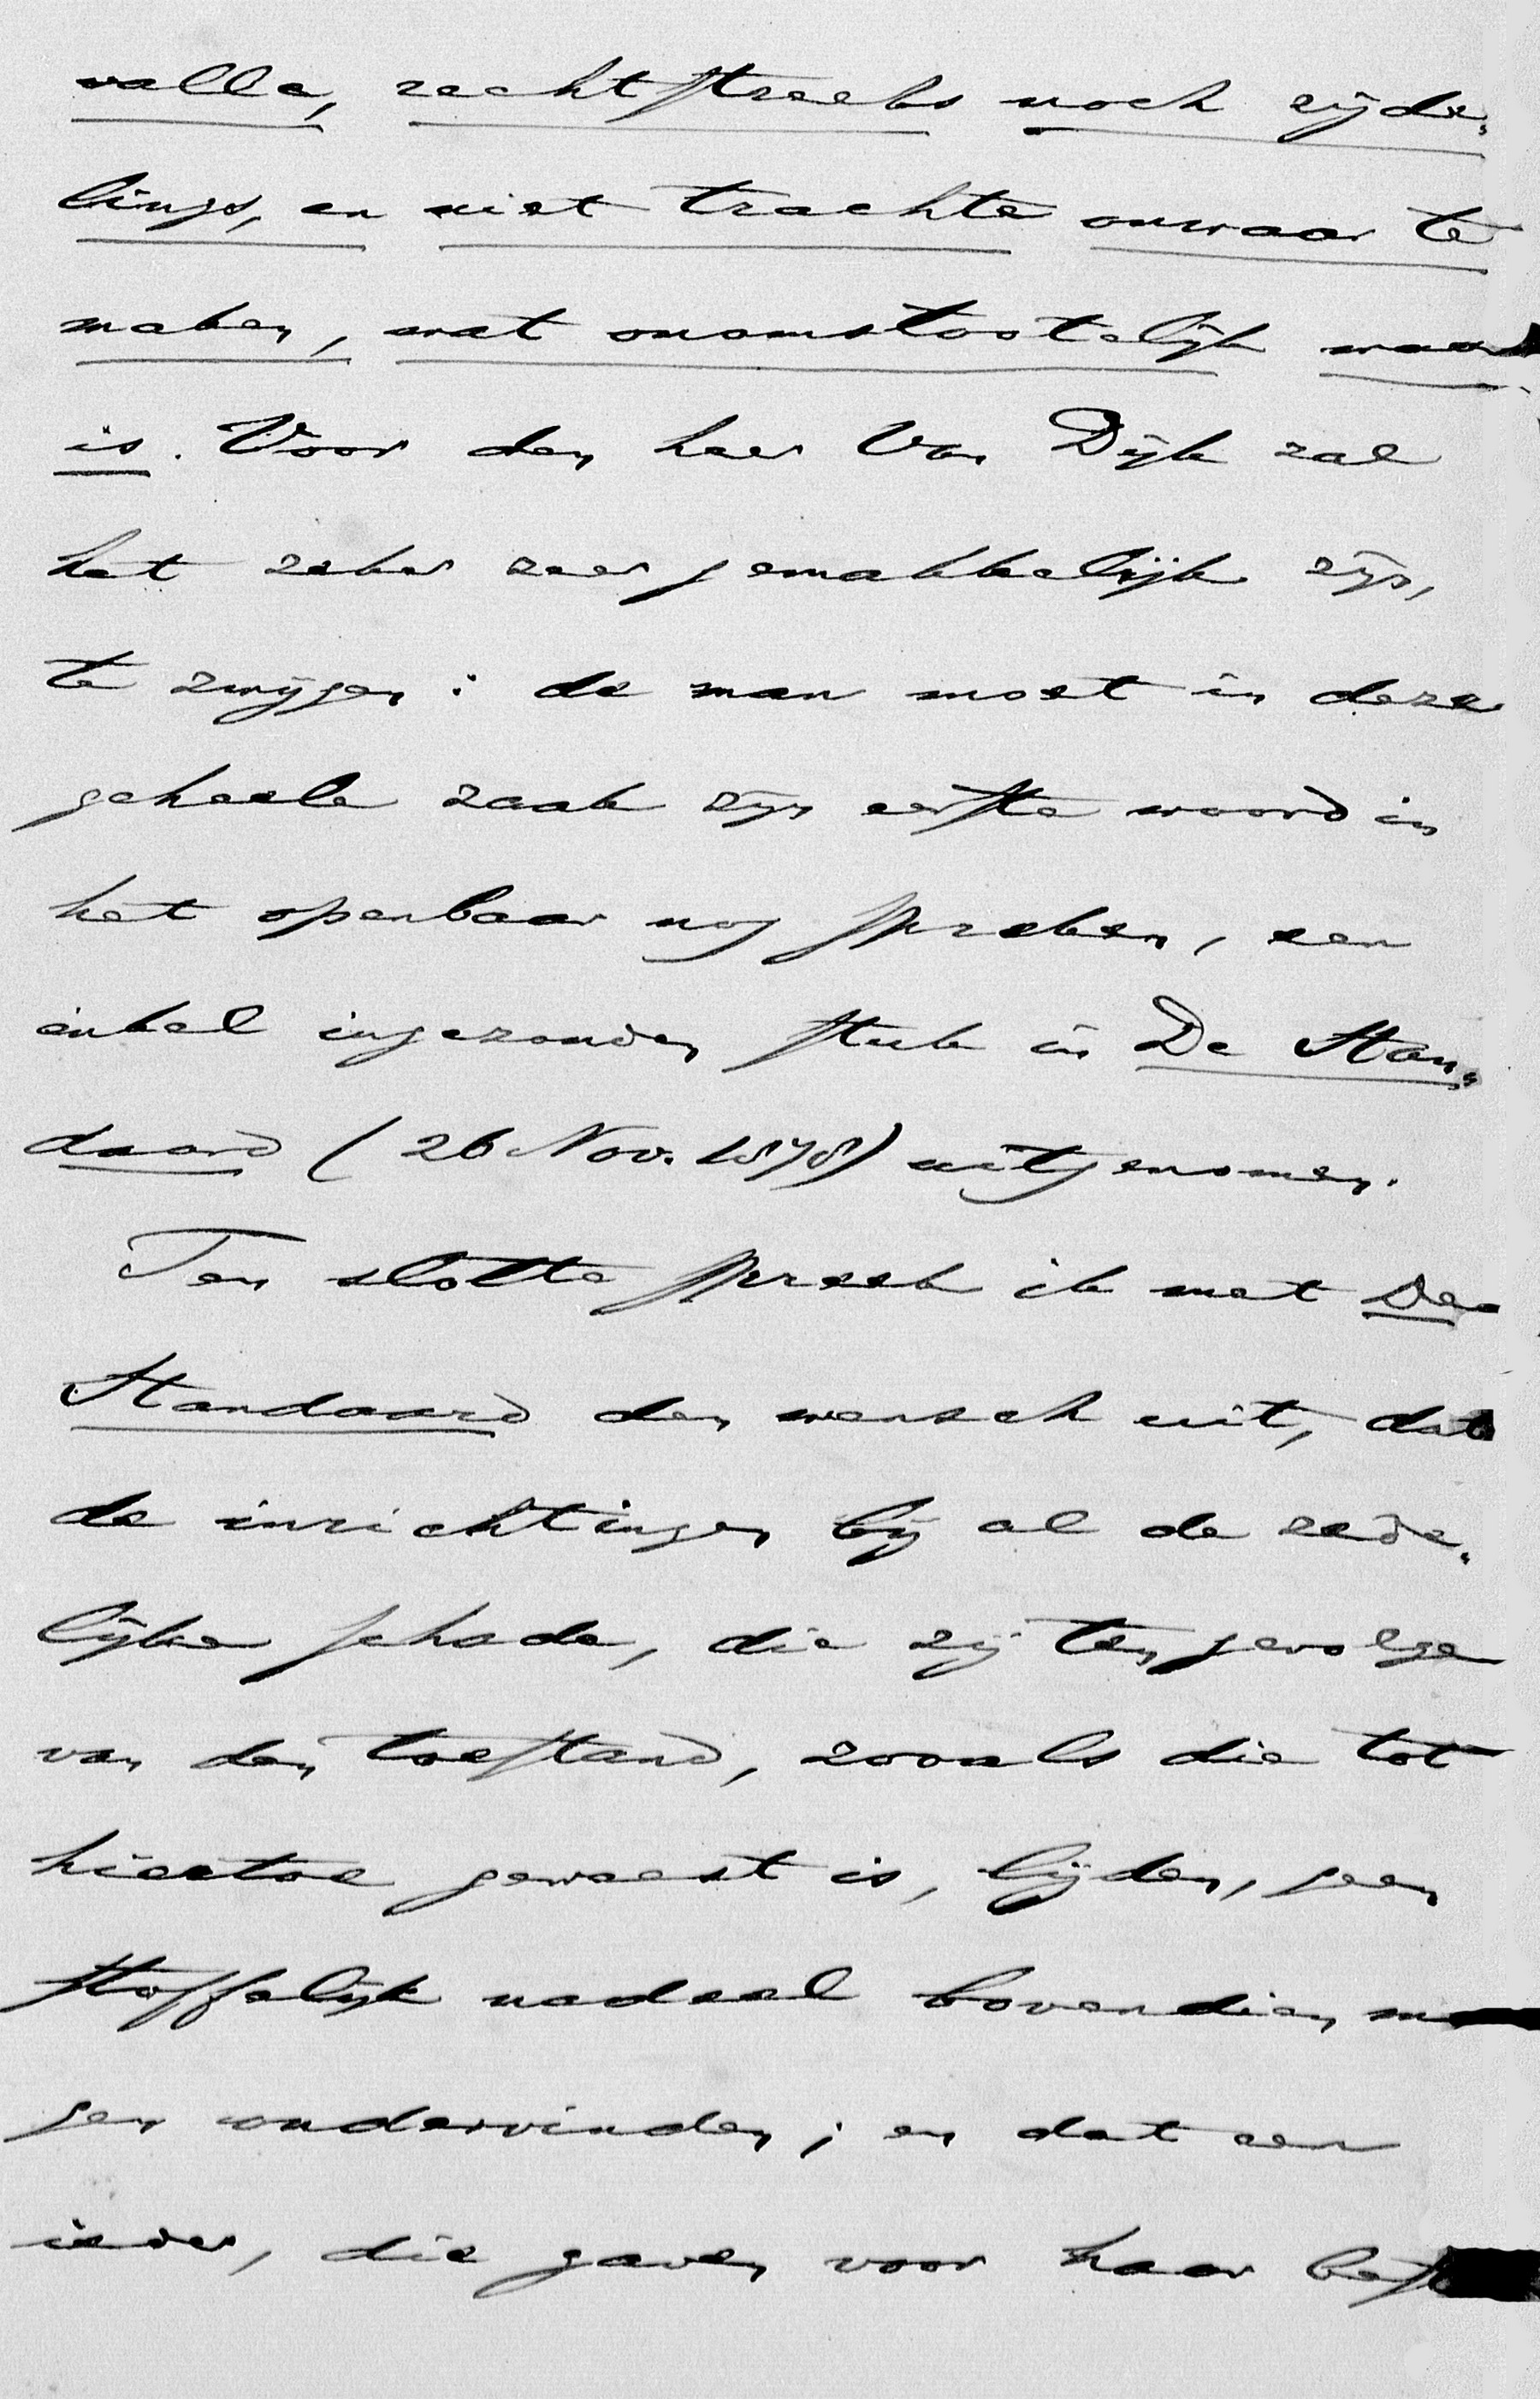 valle, rechtstreeks noch zijde-
lings, en niet trachte onwaar te
maken, wat onomstootelijk waar
is. Voor den heer Van Dijk zal
het zeker zeer gemakkelijk zijn,
te zwijgen: de man moet in deze
geheele zaak zijn eerste woord in
het openbaar nog spreken, een
enkel ingezonden stuk in De Stan-
daard (26 Nov. 1878) uitgenomen.
Ten slotte spreek ik met De
Standaard den wensch uit, dat
de inrichtingen bij al de zede-
lijke schade, die zij ten gevolge
van den toestand, zooals die tot
hiertoe geweest is, lijden, geen
stoffelijk nadeel bovendien mo
gen ondervinden; en dat een
ieder, die gaven voor haar